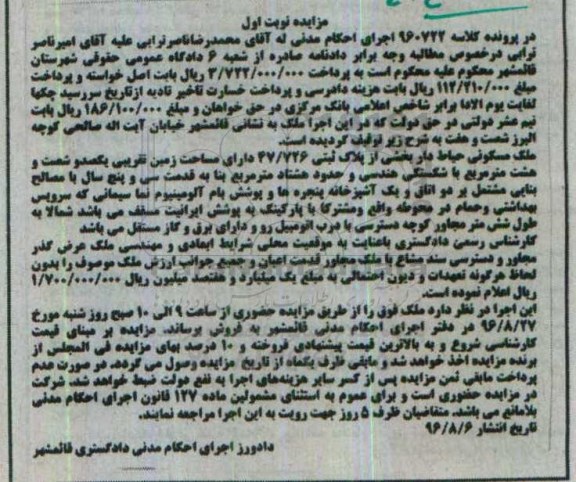 مزایده نوبت اول
در پرونده کلاسه ۹۶۰۷۲۲ اجرای احکام مدنی له آقای محمدرضاناصرترابی علیه آقای امیرناصر
ترابی درخصوص مطالبه وجه برابر دادنامه صادره از شعبه ۶ دادگاه عمومی حقوقی شهرستان
قائمشهر محکوم علیه محکوم است به پرداخت ۳/۷۲۲/۰۰۰/۰۰۰ ریال بابت اصل خواسته و پرداخت
مبلغ ۱۱۲/۲۱۰/۰۰۰ ریال بابت هزینه دادرسی و پرداخت خسارت تاخیر تادیه ازتاریخ سررسید چکها
لغایت یوم الادا برابر شاخص اعلامی بانک مرکزی در حق خواهان و مبلغ ۱۸۶/۱۰۰/۰۰۰ ریال بابت
نیم عشر دولتی در حق دولت که در این اجرا ملک به نشانی قائمشهر خیابان آیت اله صالحی کوچه
البرز شصت و هفت به شرح زیر توقیف گردیده است.
ملک مسکونی حیاط دار بخشی از پلاک ثبتی ۴۷/۷۲۶ دارای مساحت زمین تقریبی یکصدو شصت و
هشت مترمربع با شکستگی هندسی و حدود هشتاد مترمربع بنا به قدمت سی و پنج سال با مصالح
بنایی مشتمل بر دو اتاق و یک آشپزخانه پنجره ها و پوشش بام آلومینیوم نما سیمانی که سرویس
بهداشتی وحمام در محوطه واقع ومشترکا با پارکینگ به پوشش ایرانیت مسقف می باشد شمالا به
طول شش متر مجاور کوچه دسترسی با درب اتومبیل رو و دارای برق و گاز مستقل می باشد
کارشناس رسمی دادگستری باعنایت به موقعیت محلی شرایط ابعادی و مهندسی ملک عرض گذر
مجاور و دسترسی سند مشاع با ملک مجاور قدمت اعیان و جمیع جوانب ارزش ملک موصوف را بدون
لحاظ هرگونه تعهدات و دیون احتمالی به مبلغ یک میلیارد و هفتصد میلیون ریال ۱/۷۰۰/۰۰۰/۰۰۰
ریال اعلام نموده است.
این اجرا در نظر دارد ملک فوق را از طریق مزایده حضوری از ساعت ۹ الی ۱۰ صبح روز شنبه مورخ
۹۶/۸/۲۷ در دفتر اجرای احکام مدنی قائمشهر به فروش برساند. مزایده بر مبنای قیمت
کارشناسی شروع و به بالاترین قیمت پیشنهادی فروخته و ۱۰ درصد بهای مزایده فی المجلس از
برنده مزایده اخذ خواهد شد و مابقی ظرف یکماه از تاریخ مزایده وصول می گردد. در صورت عدم
پرداخت مابقی ثمن مزایده پس از کسر سایر هزینه‌های اجرا به نفع دولت ضبط خواهد شد. شرکت
در مزایده حضوری است و برای عموم به استثنای مشمولین ماده ۱۲۷ قانون اجرای احکام مدنی
بلامانع می باشد. متقاضیان ظرف ۵ روز جهت رویت به این اجرا مراجعه نمایند.
تاریخ انتشار ۹۶/۸/۶
دادورز اجرای احکام مدنی دادگستری قائمشهر